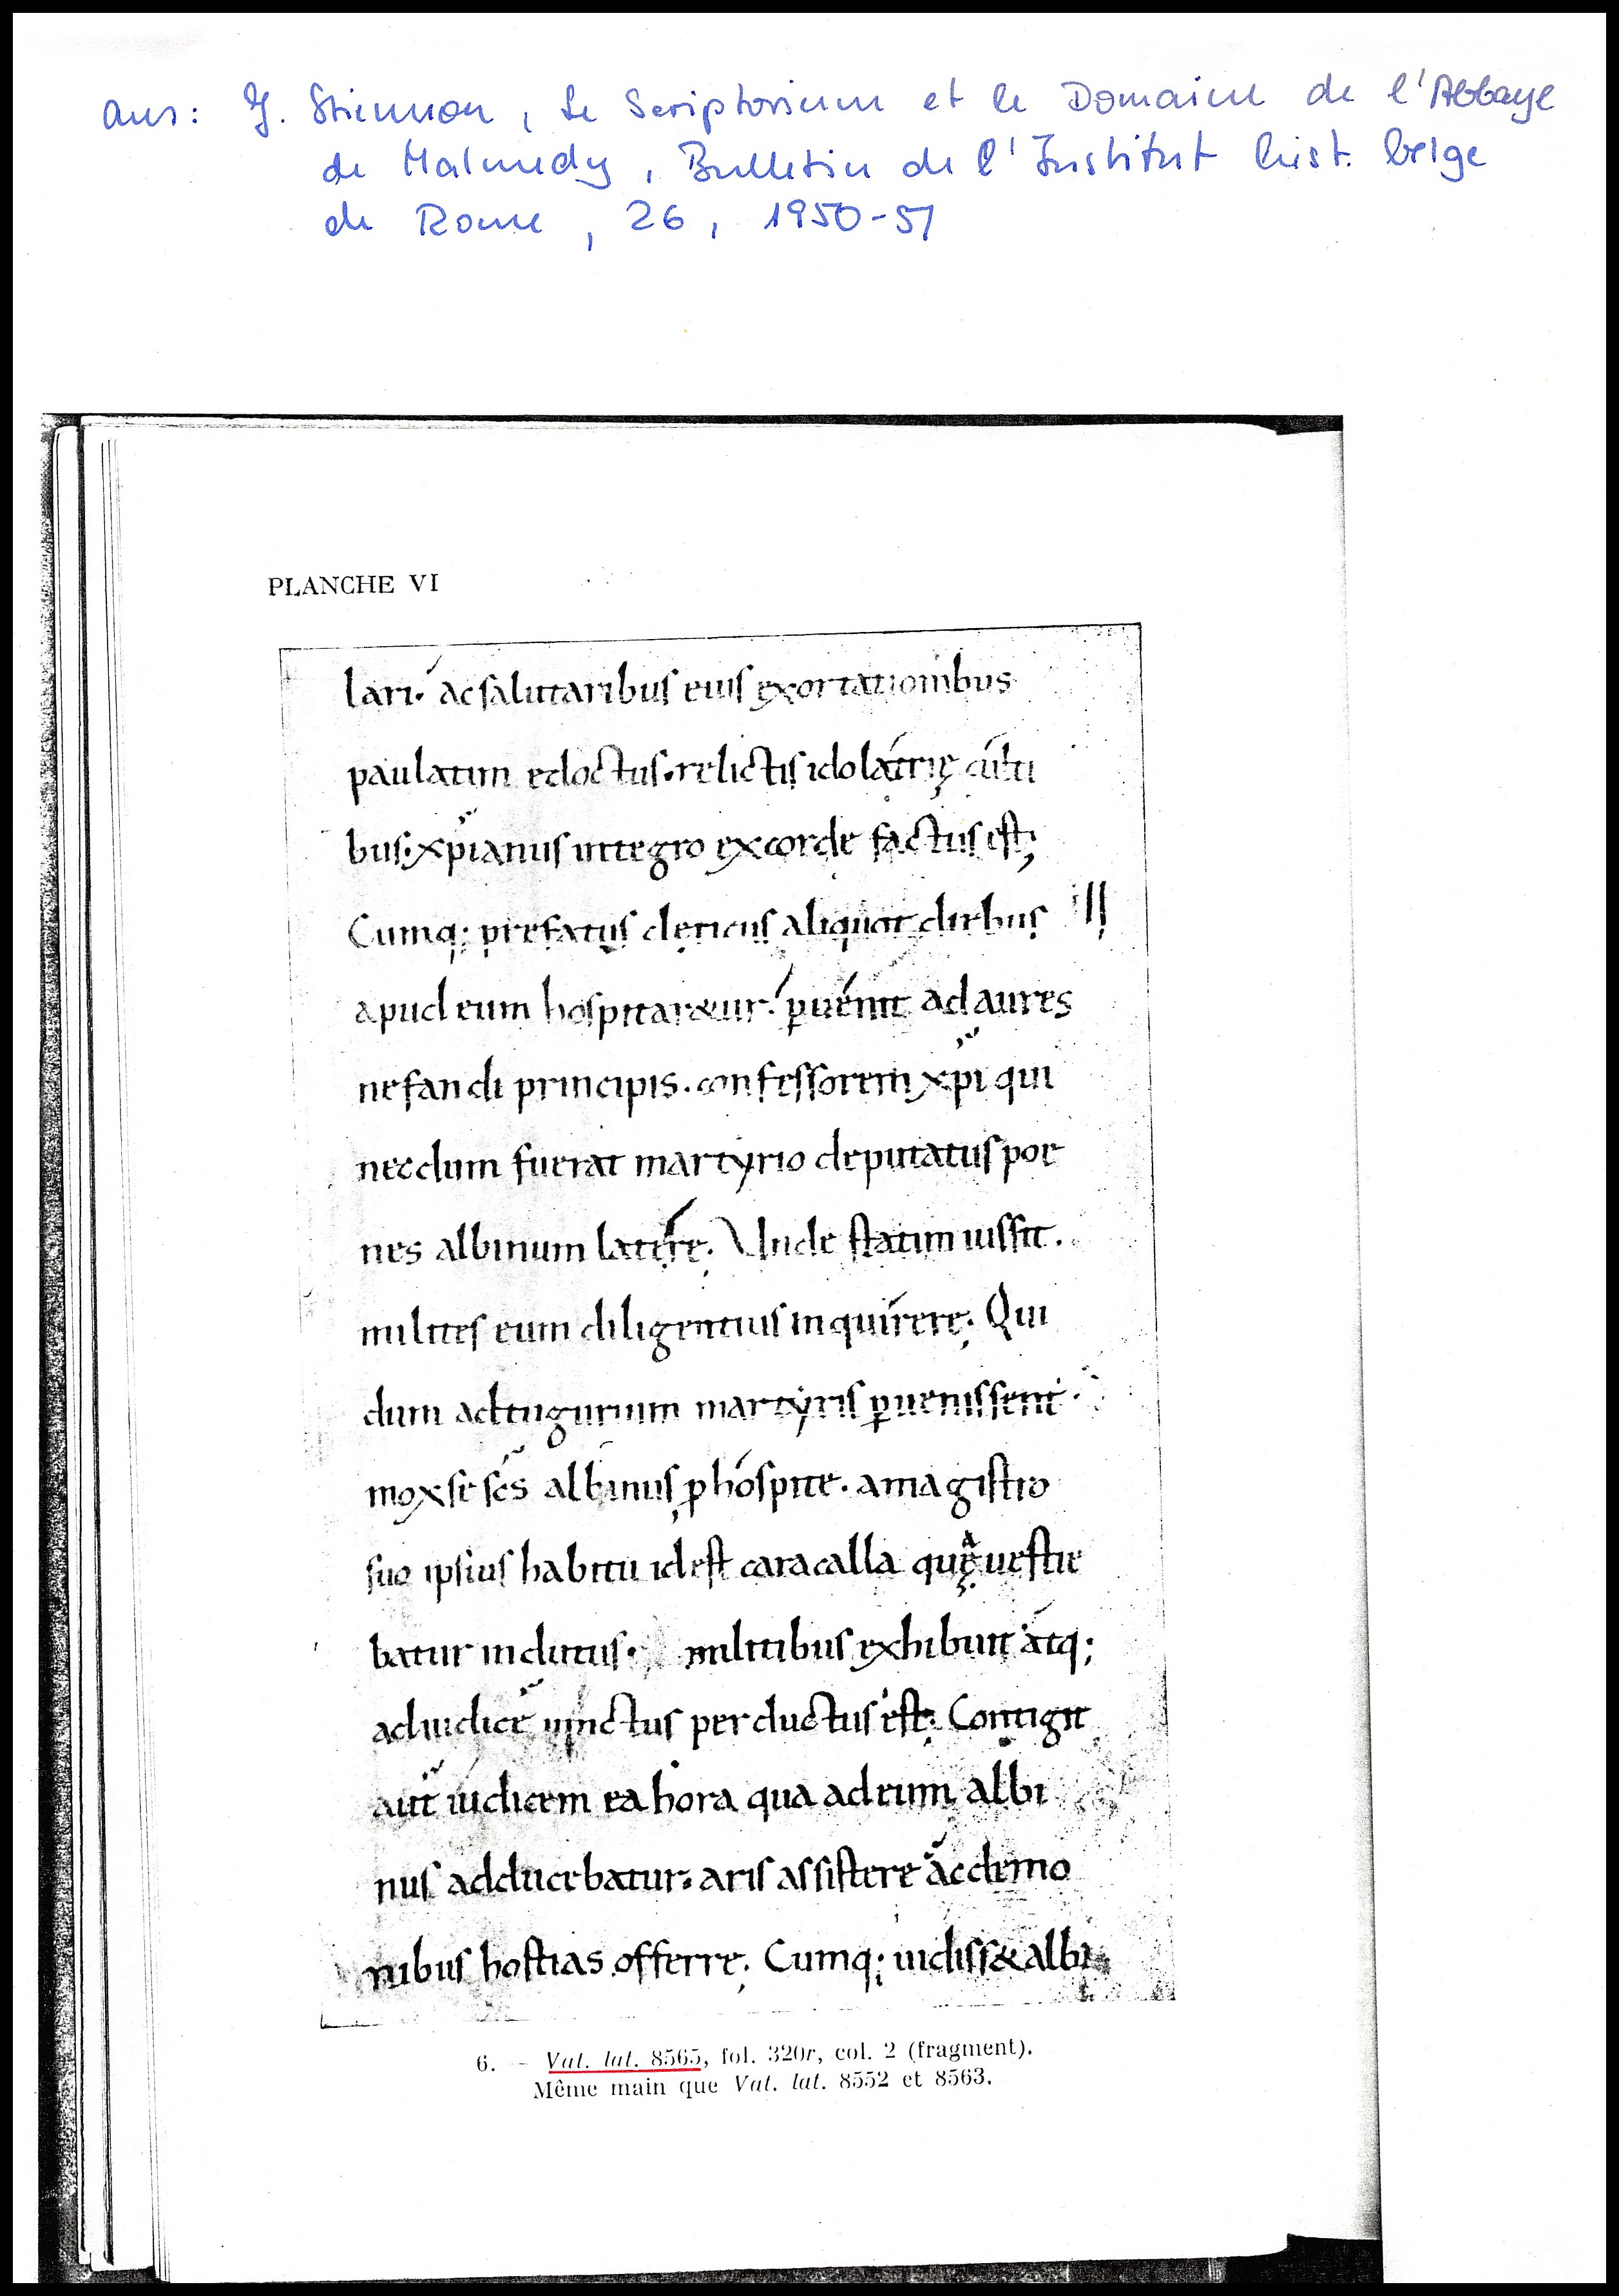 aus: J. Stiennon, Le Scriptorium et le Domaine de l'Abbaye
de Malmedy, Bulletin de l'Institut hist. belge
de Rome, 26, 1950-51
PLANCHE VI
lari· ac salutaribus eius exortationibus
paulatim edoctus· relictis idolatrię culti
bus· xp̄ianus integro ex corde factus est;
Cumq; prefatus clericus aliquot diebus
apud eum hospitar&ur· ꝑuenit ad aures
nefandi principis· confessorem xp̄i qui
necdum fuerat martyrio deputatus poe
nes albinum latere· Unde statim iussit·
milites eum diligentius inquirere· Qui
dum ad tugurium martyris ꝑuenissent·
mox se sc̄s albinus ꝓ hospite· a magistro
suo ipsius habitu id est caracalla qua uestie
batur indutus· militibus exhibuit atq;
ad iudicē uinctus perductus est; Contigit
aut̄ iudicem ea hora qua ad eum albi
nus adducebatur· aris assistere ac demo
nibus hostias offerre; Cumq; uidiss& albi
6. – Vat. lat. 8565, fol. 320r, col. 2 (fragment).
Même main que Vat. lat. 8552 et 8563.